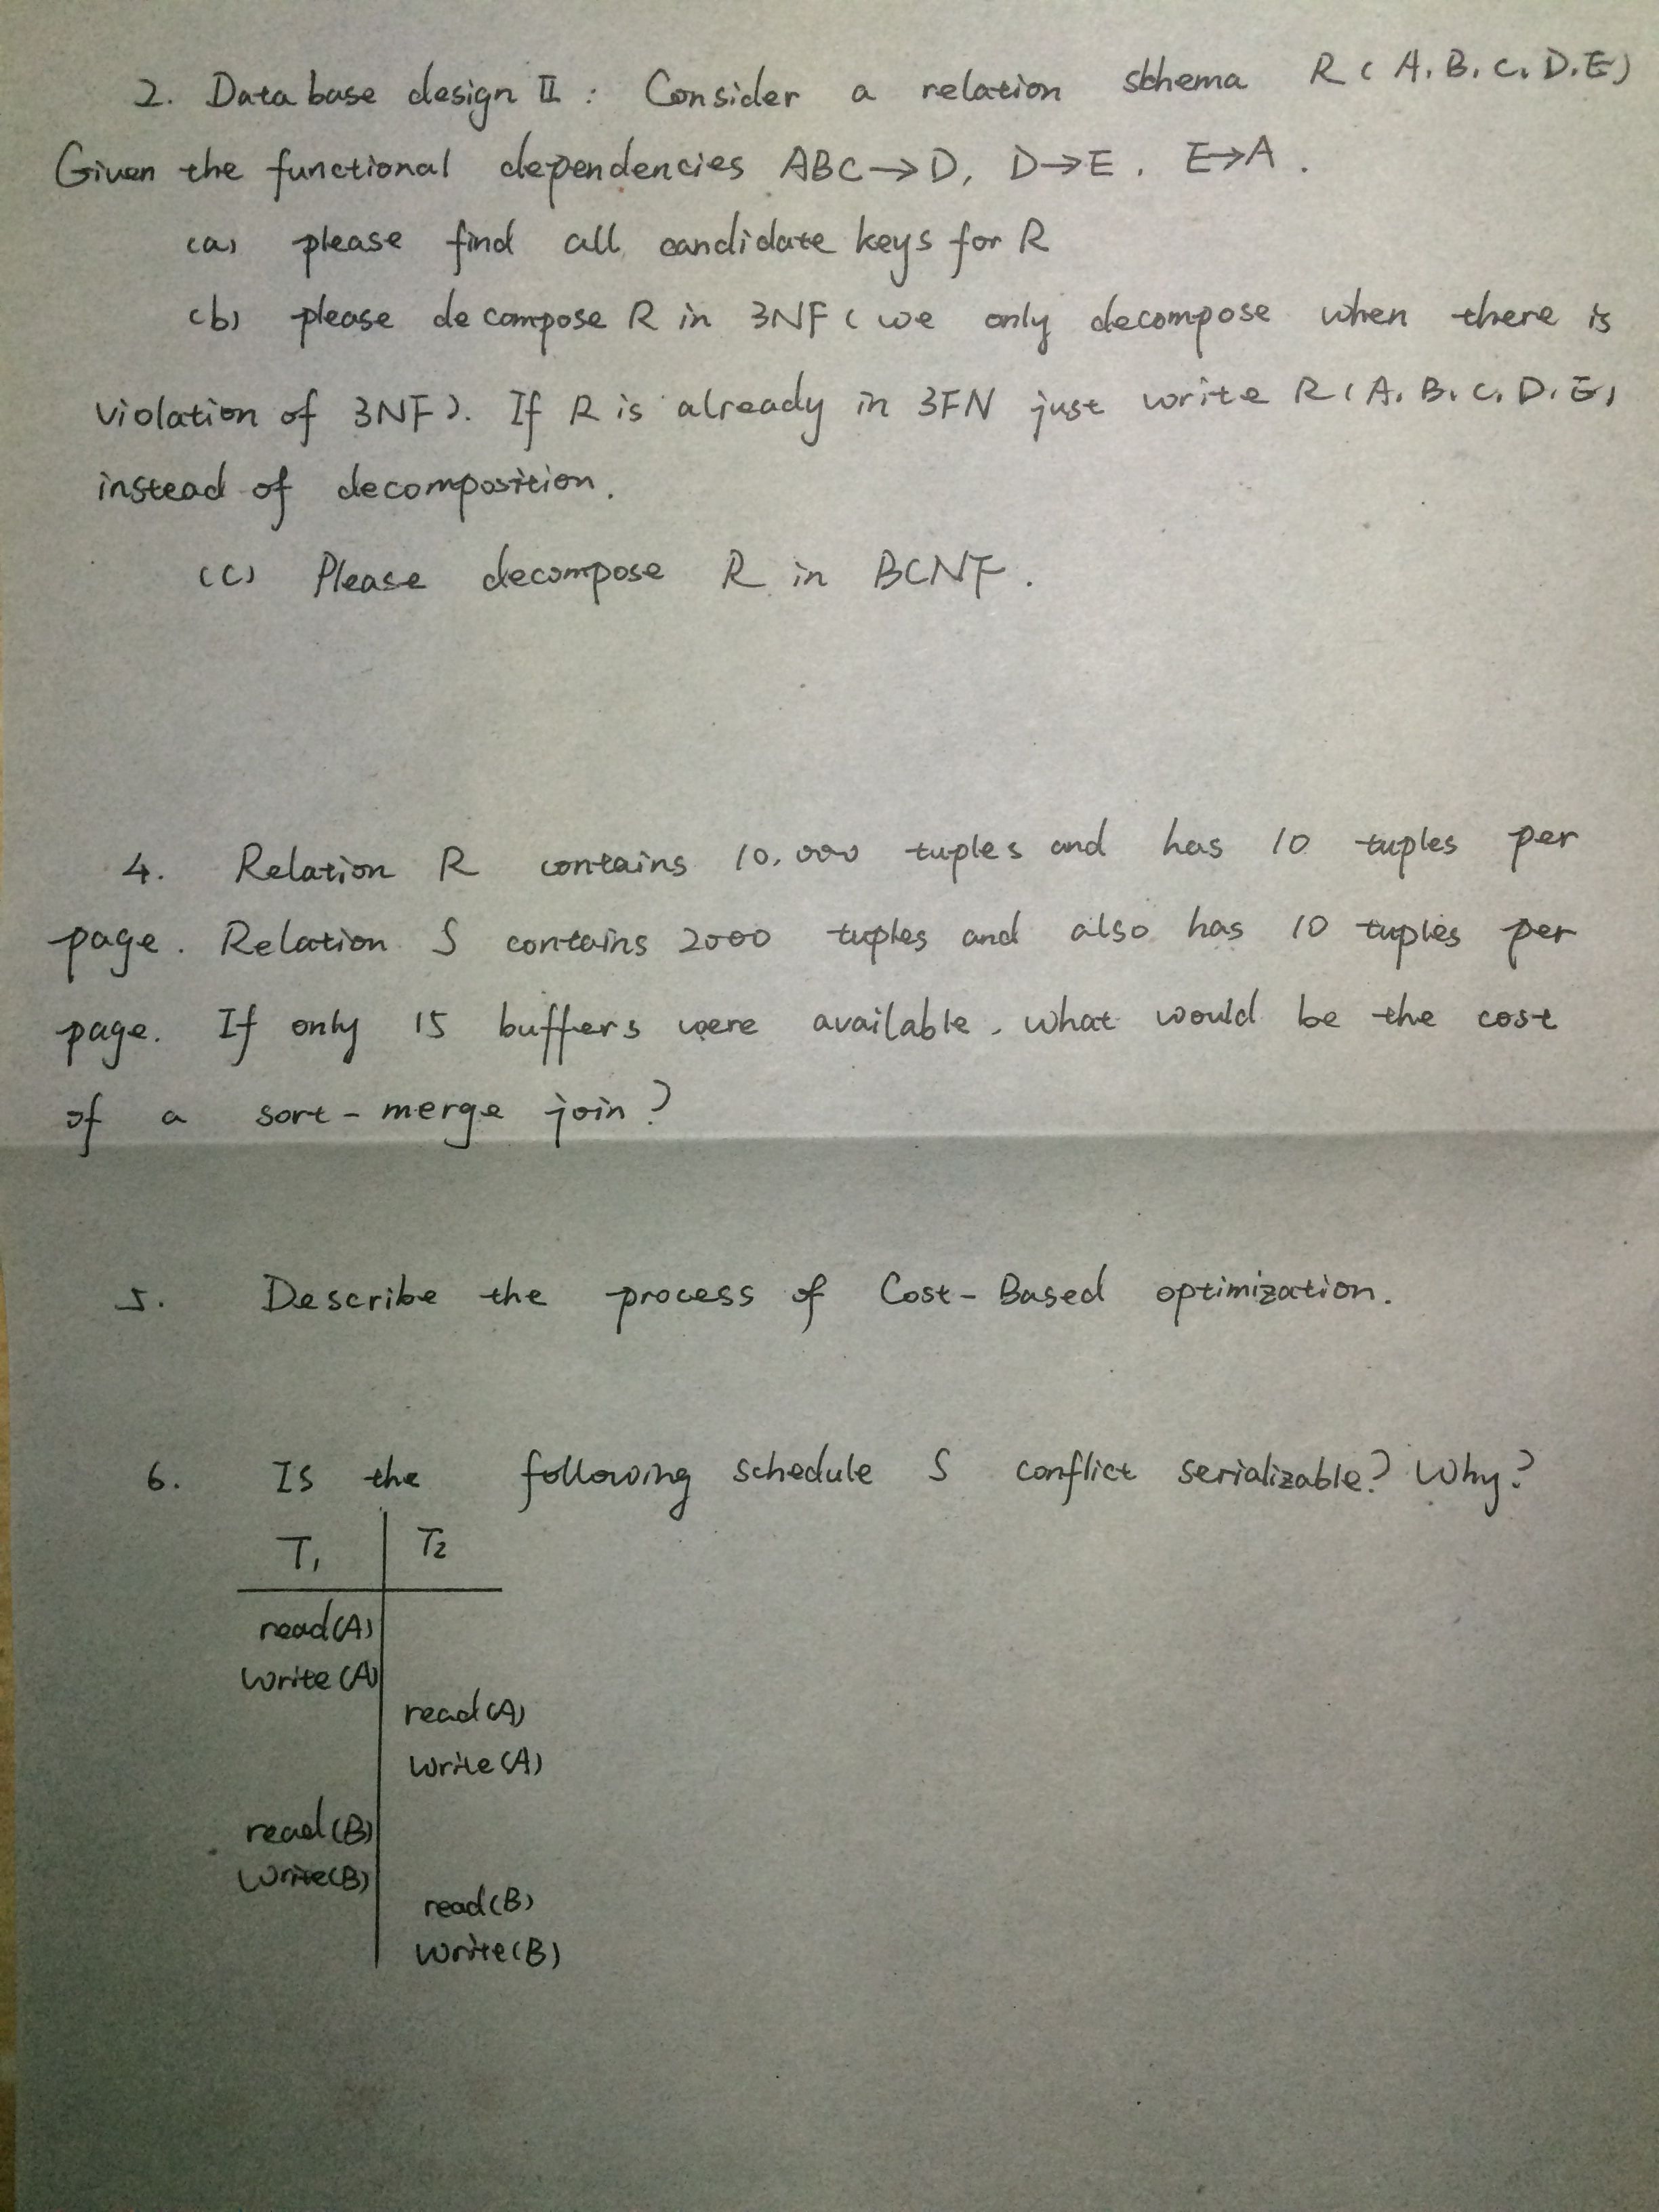 2. Database design II : Consider a relation schema R ( A, B, C, D, E)
Given the functional dependencies ABC→D, D→E, E→A.
(a) please find all candidate keys for R
(b) please decompose R in 3NF ( we only decompose when there is
violation of 3NF). If R is already in 3FN just write R(A, B, C, D, E)
instead of decomposition.
(c) Please decompose R in BCNF.
4. Relation R contains 10,000 tuples and has 10 tuples per
page. Relation S contains 2000 tuples and also has 10 tuples per
page. If only 15 buffers were available, what would be the cost
of a sort-merge join?
5. Describe the process of Cost-Based optimization.
6. Is the following schedule S conflict serializable? Why?
T1 T2
read(A)
write(A)
read(A)
write(A)
read(B)
write(B)
read(B)
write(B)